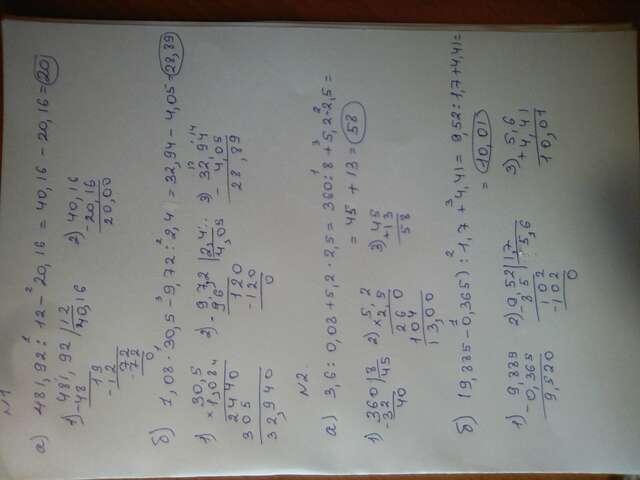 N1
а) 481,92 : 12 - 20,16 = 40,16 - 20,16 = 20
1) 481,92 | 12
-48 40,16
19
-12
72
-72
0
2) 40,16
-20,16
20,00
б) 1,08 · 30,5 - 9,72 : 2,4 = 32,94 - 4,05 = 28,89
1) 30,5
× 1,08
2440
305
32,940
2) 9,72 | 2,4
96 4,05
120
-120
0
3) 32,94
- 4,05
28,89
N2.
а) 3,6 : 0,08 + 5,2 · 2,5 = 360 : 8 + 5,2 · 2,5 =
= 45 + 13 = 58
1) 360 | 8
-32 45
40
2) 5,2
× 2,5
260
104
13,00
3) 45
+13
58
б) (9,885 - 0,365) : 1,7 + 4,41 = 9,52 : 1,7 + 4,41 =
= 10,01
1) 9,885
- 0,365
9,520
2) 9,52 | 1,7
- 85 5,6
102
-102
0
3) 5,6
+ 4,41
10,01